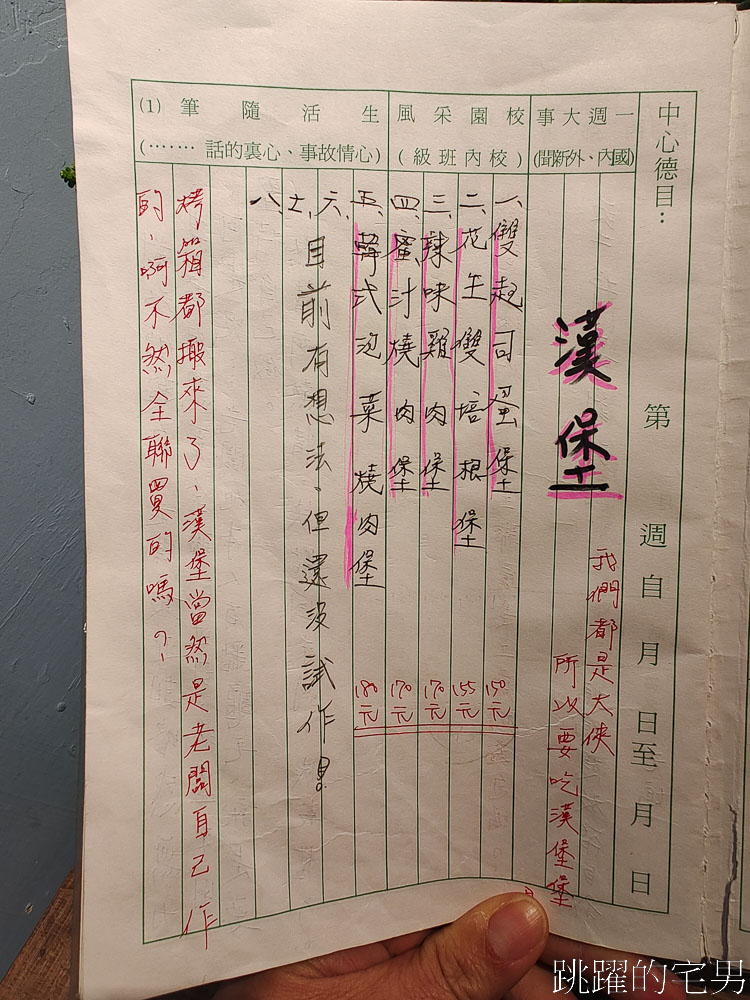 中心德目：
第　週自　月　日至　月　日
一週大事
(國內、外新聞)
校園采風
(校內班級)
生活隨筆
(心情故事、心裏的話……)
(1)
漢堡
我們都是大俠
所以要吃漢堡堡
一、雙起司蛋堡 150元
二、花生雙培根堡 155元
三、辣味雞肉堡 170元
四、蜜汁燒肉堡 170元
五、韓式泡菜燒肉堡 180元
六、目前有想法、但還沒試作！
七、
八、
烤箱都搬來了、漢堡當然是老闆自己作
的、啊不然全聯買的嗎？
跳躍的宅男